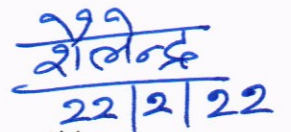 शैलेन्द्र
22/2/22